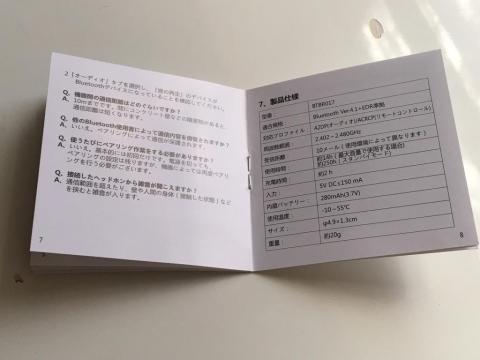 2「オーディオ」タブを選択し、「音の再生」のデバイスが
Bluetoothデバイスになっていることを確認してください。
Q. 機器間の通信距離はどのぐらいですか？
A. 10mまでです。間にコンクリート壁などの障害物があると、
通信距離は短くなります。
Q. 他のBluetooth使用者によって通信内容を傍受されますか？
A. いいえ。ペアリングによって通信が保護されます。
Q. 使うたびにペアリング作業をする必要がありますか？
A. いいえ。基本的には初回だけです。電源を切っても
ペアリングの設定は残りますが、機器によっては再度ペアリ
ングを行う必要がございます。
Q. 接続したヘッドホンから雑音が聞こえますか？
A. 通信範囲を超えたり、壁や人間の身体（接続した状態）など
を挟むと雑音が入ります。
7
7、製品仕様
型番： BTBR017
適合規格： Bluetooth Ver.4.1+EDR準拠
対応プロファイル： A2DP(オーディオ)/ACRCP(リモートコントロール)
周波数範囲： 2.402~2.480GHz
受信距離： 10メール（使用環境によって異なります）
使用時間： 約14h（最大音量で使用する場合）
約250h（スタンバイモード）
充電時間： 約2 h
入力： 5V DC≤150 mA
内蔵バッテリー： 280mAh(3.7V)
使用温度： -10~55℃
サイズ： φ4.9×1.3cm
重量： 約20g
8